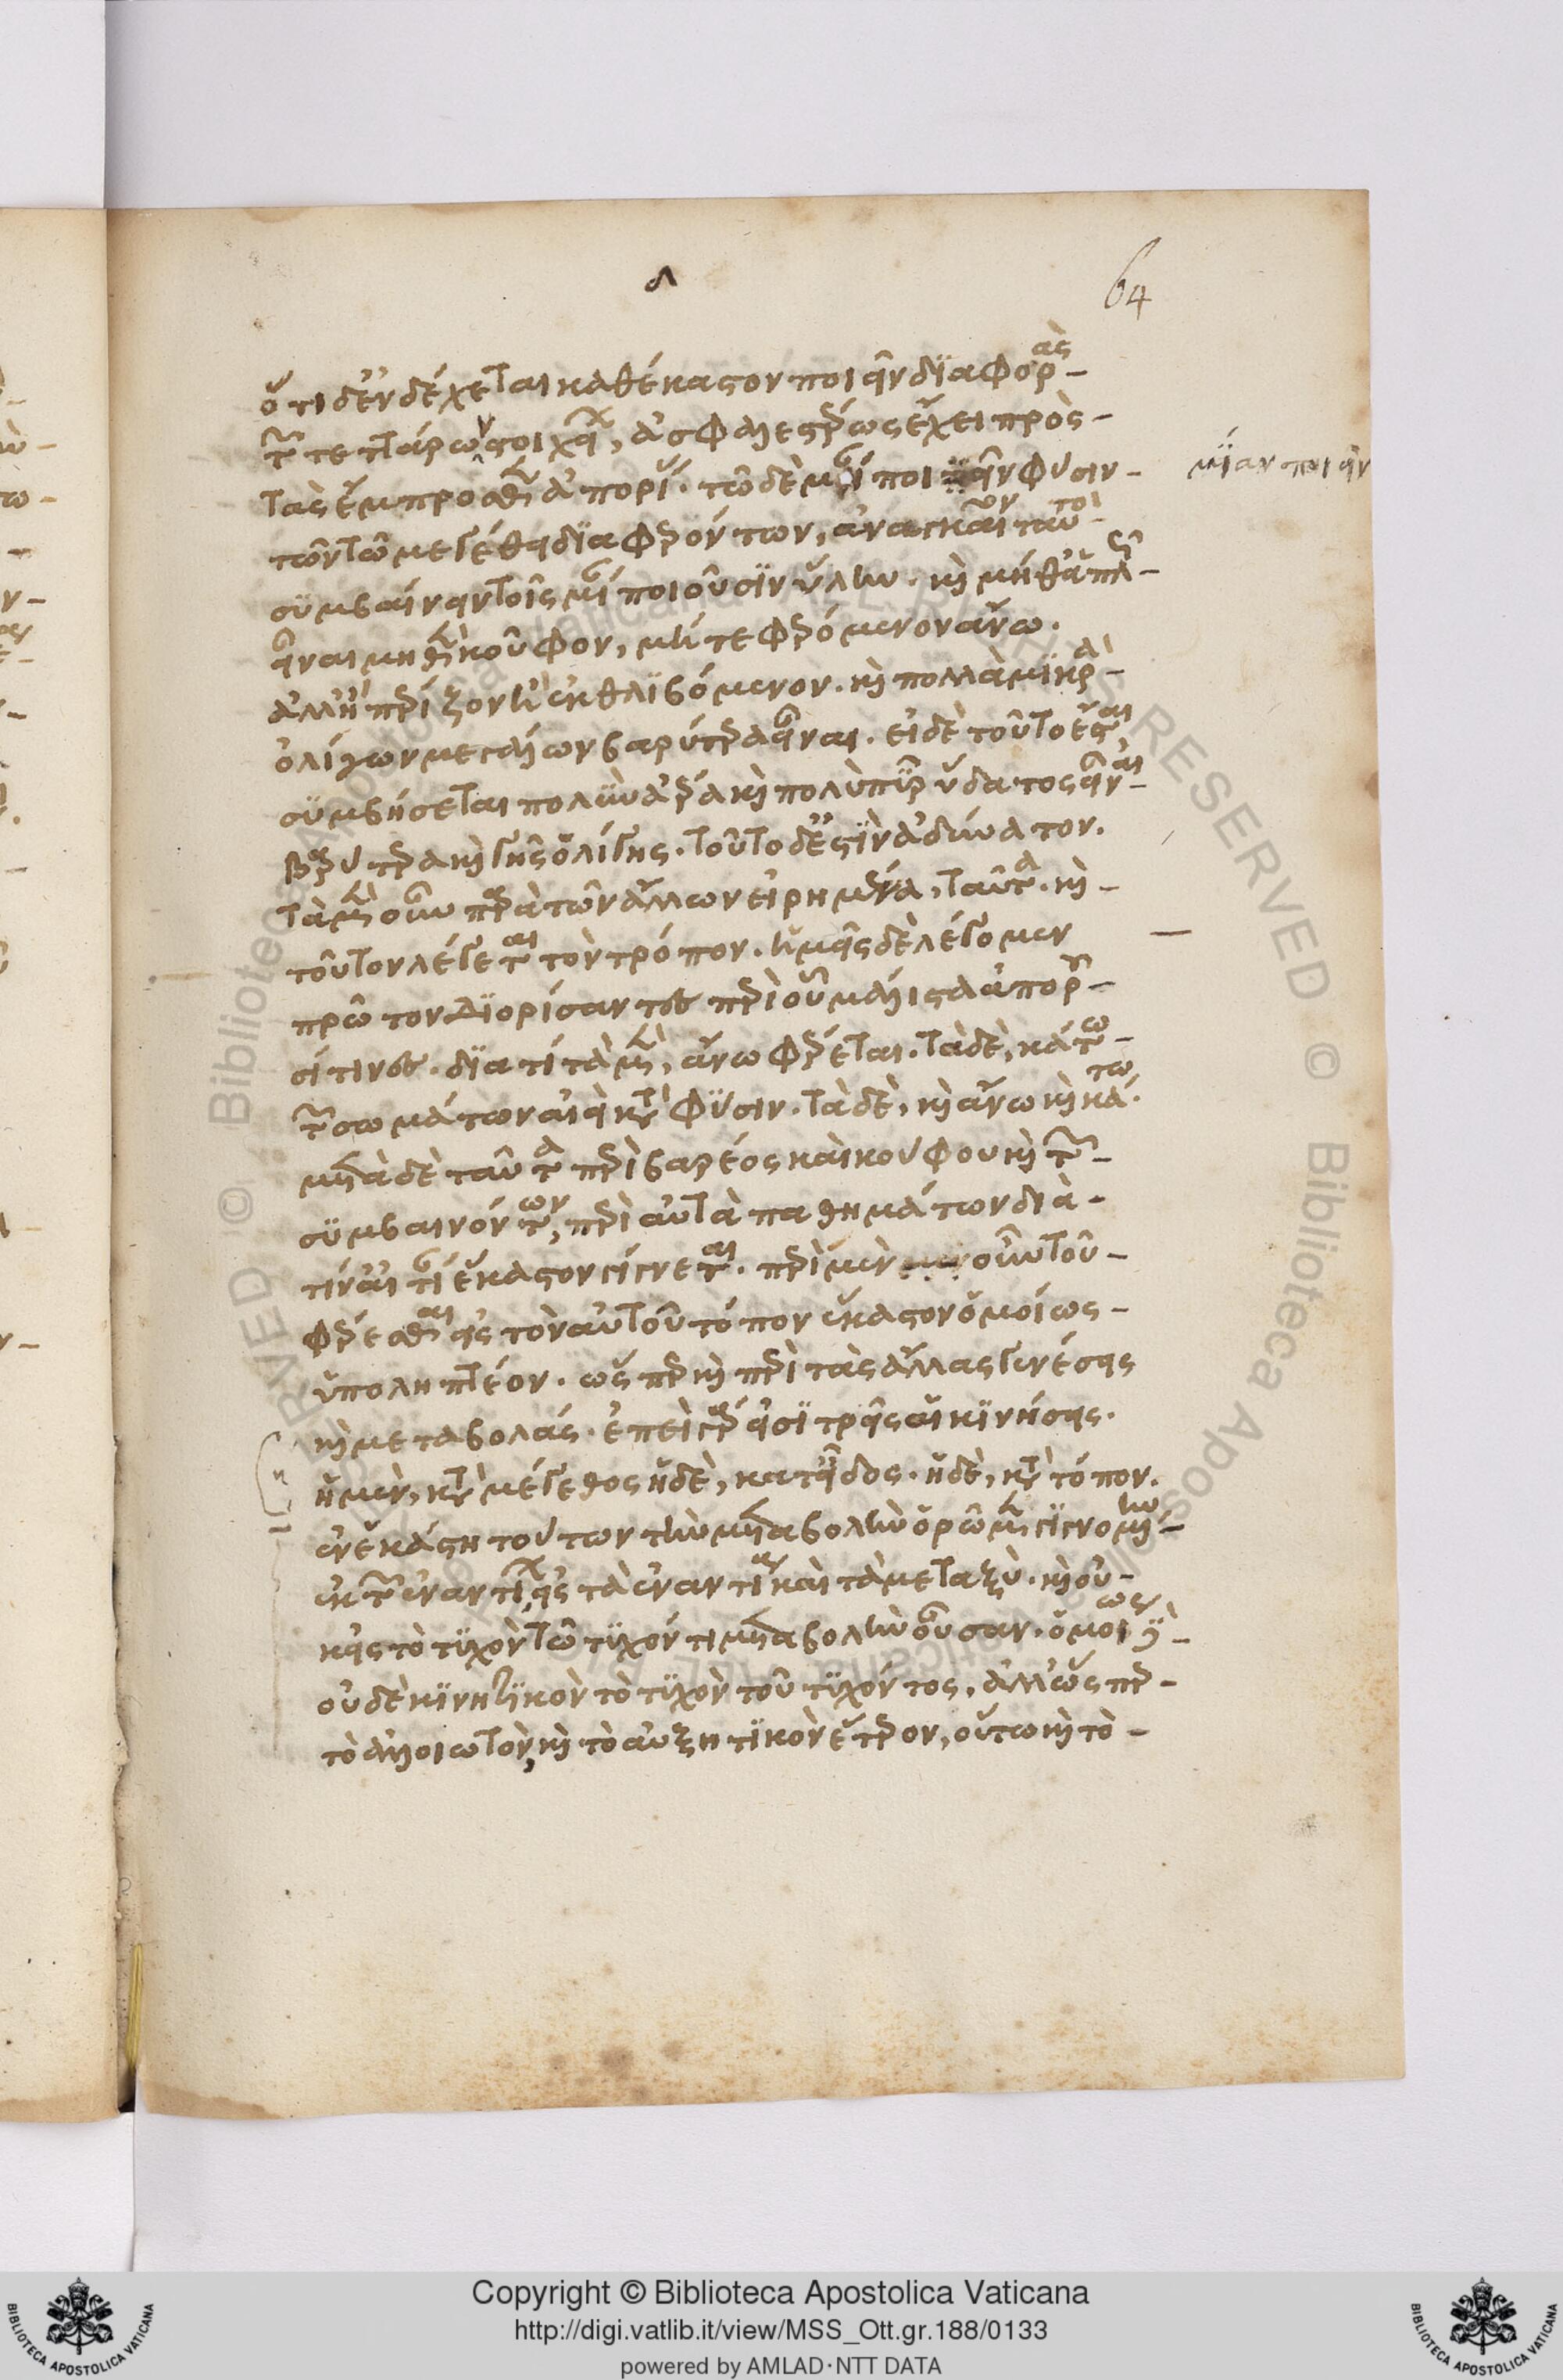 δ
64
ὅτι δ' ἐνδέχεται καθέκαστον ποιεῖν διαφορὰς
τῶν τεττάρων στοιχείων, ἀσφαλεστέρως ἔχει πρὸς
τὰς ἔμπροσθεν ἀπορίας· τῶ δὲ μίαν ποιεῖν φύσιν
μίαν ποιεῖν
τῶν τῶ μεγέθει διαφερόντων, ἀναγκαῖον ταὐτὸ
συμβαίνειν τοῖς μίαν ποιοῦσιν ὕλην. καὶ μήθ' ἁπλῶς
εἶναι μηθὲν κοῦφον, μήτε φερόμενον ἄνω.
ἀλλ' ἢ περίζον ἢ ἐκθλιβόμενον. καὶ πολλὰ μικρὰ
ὀλίγων μεγάλων βαρύτερα εἶναι. εἰ δὲ τοῦτο ἔσται
συμβήσεται πολὺν ἀέρα καὶ πολὺ πῦρ ὕδατος εἶναι
βαρύτερα καὶ γῆς ὀλίγης. τοῦτο δ' ἐστὶν ἀδύνατον.
τὰ μὲν οὖν παρὰ τῶν ἄλλων εἰρημένα, ταῦτα. καὶ
τοῦτον λέγεται τὸν τρόπον. ἡμεῖς δὲ λέγομεν
πρῶτον διορίσαντες περὶ οὗ μάλιστα ἀποροῦ
σί τινες. διὰ τί τὰ μὲν, ἄνω φέρεται. τὰ δὲ, κάτω
τῶν σωμάτων ἀεὶ κατὰ φύσιν. τὰ δὲ, καὶ ἄνω καὶ κάτω.
μετὰ δὲ ταῦτα περὶ βαρέος καὶ κούφου καὶ τῶν
συμβαινόντων, περὶ αὐτὰ παθημάτων διὰ
τίν' αἰτίαν ἕκαστον γίγνεται. περὶ μὲν οὖν τοῦ
φέρεσθαι εἰς τὸν αὑτοῦ τόπον ἕκαστον ὁμοίως
ὑποληπτέον. ὥσπερ καὶ περὶ τὰς ἄλλας γενέσεις
καὶ μεταβολάς. ἐπεὶ γάρ εἰσι τρεῖς αἱ κινήσεις.
ἡ μὲν, κατὰ μέγεθος ἡ δὲ, κατ' εἶδος. ἡ δὲ, κατὰ τόπον.
ἐν ἑκάστη τούτων τὴν μεταβολὴν ὁρῶμεν γιγνομένην
ἐκ τῶν ἐναντίων εἰς τὰ ἐναντία καὶ τὰ μεταξύ. καὶ οὐ
κ εἰς τὸ τυχὸν τῶ τυχόντι μεταβολὴν οὖσαν. ὁμοίως
οὐδὲ κινητικὸν τὸ τυχὸν τοῦ τυχόντος, ἀλλ' ὥσπερ
τὸ ἀλλοιωτὸν, καὶ τὸ αὐξητικὸν ἕτερον, οὕτω καὶ τὸ
Copyright © Biblioteca Apostolica Vaticana
http://digi.vatlib.it/view/MSS_Ott.gr.188/0133
powered by AMLAD·NTT DATA
BIBLIOTECA APOSTOLICA VATICANA
BIBLIOTECA APOSTOLICA VATICANA